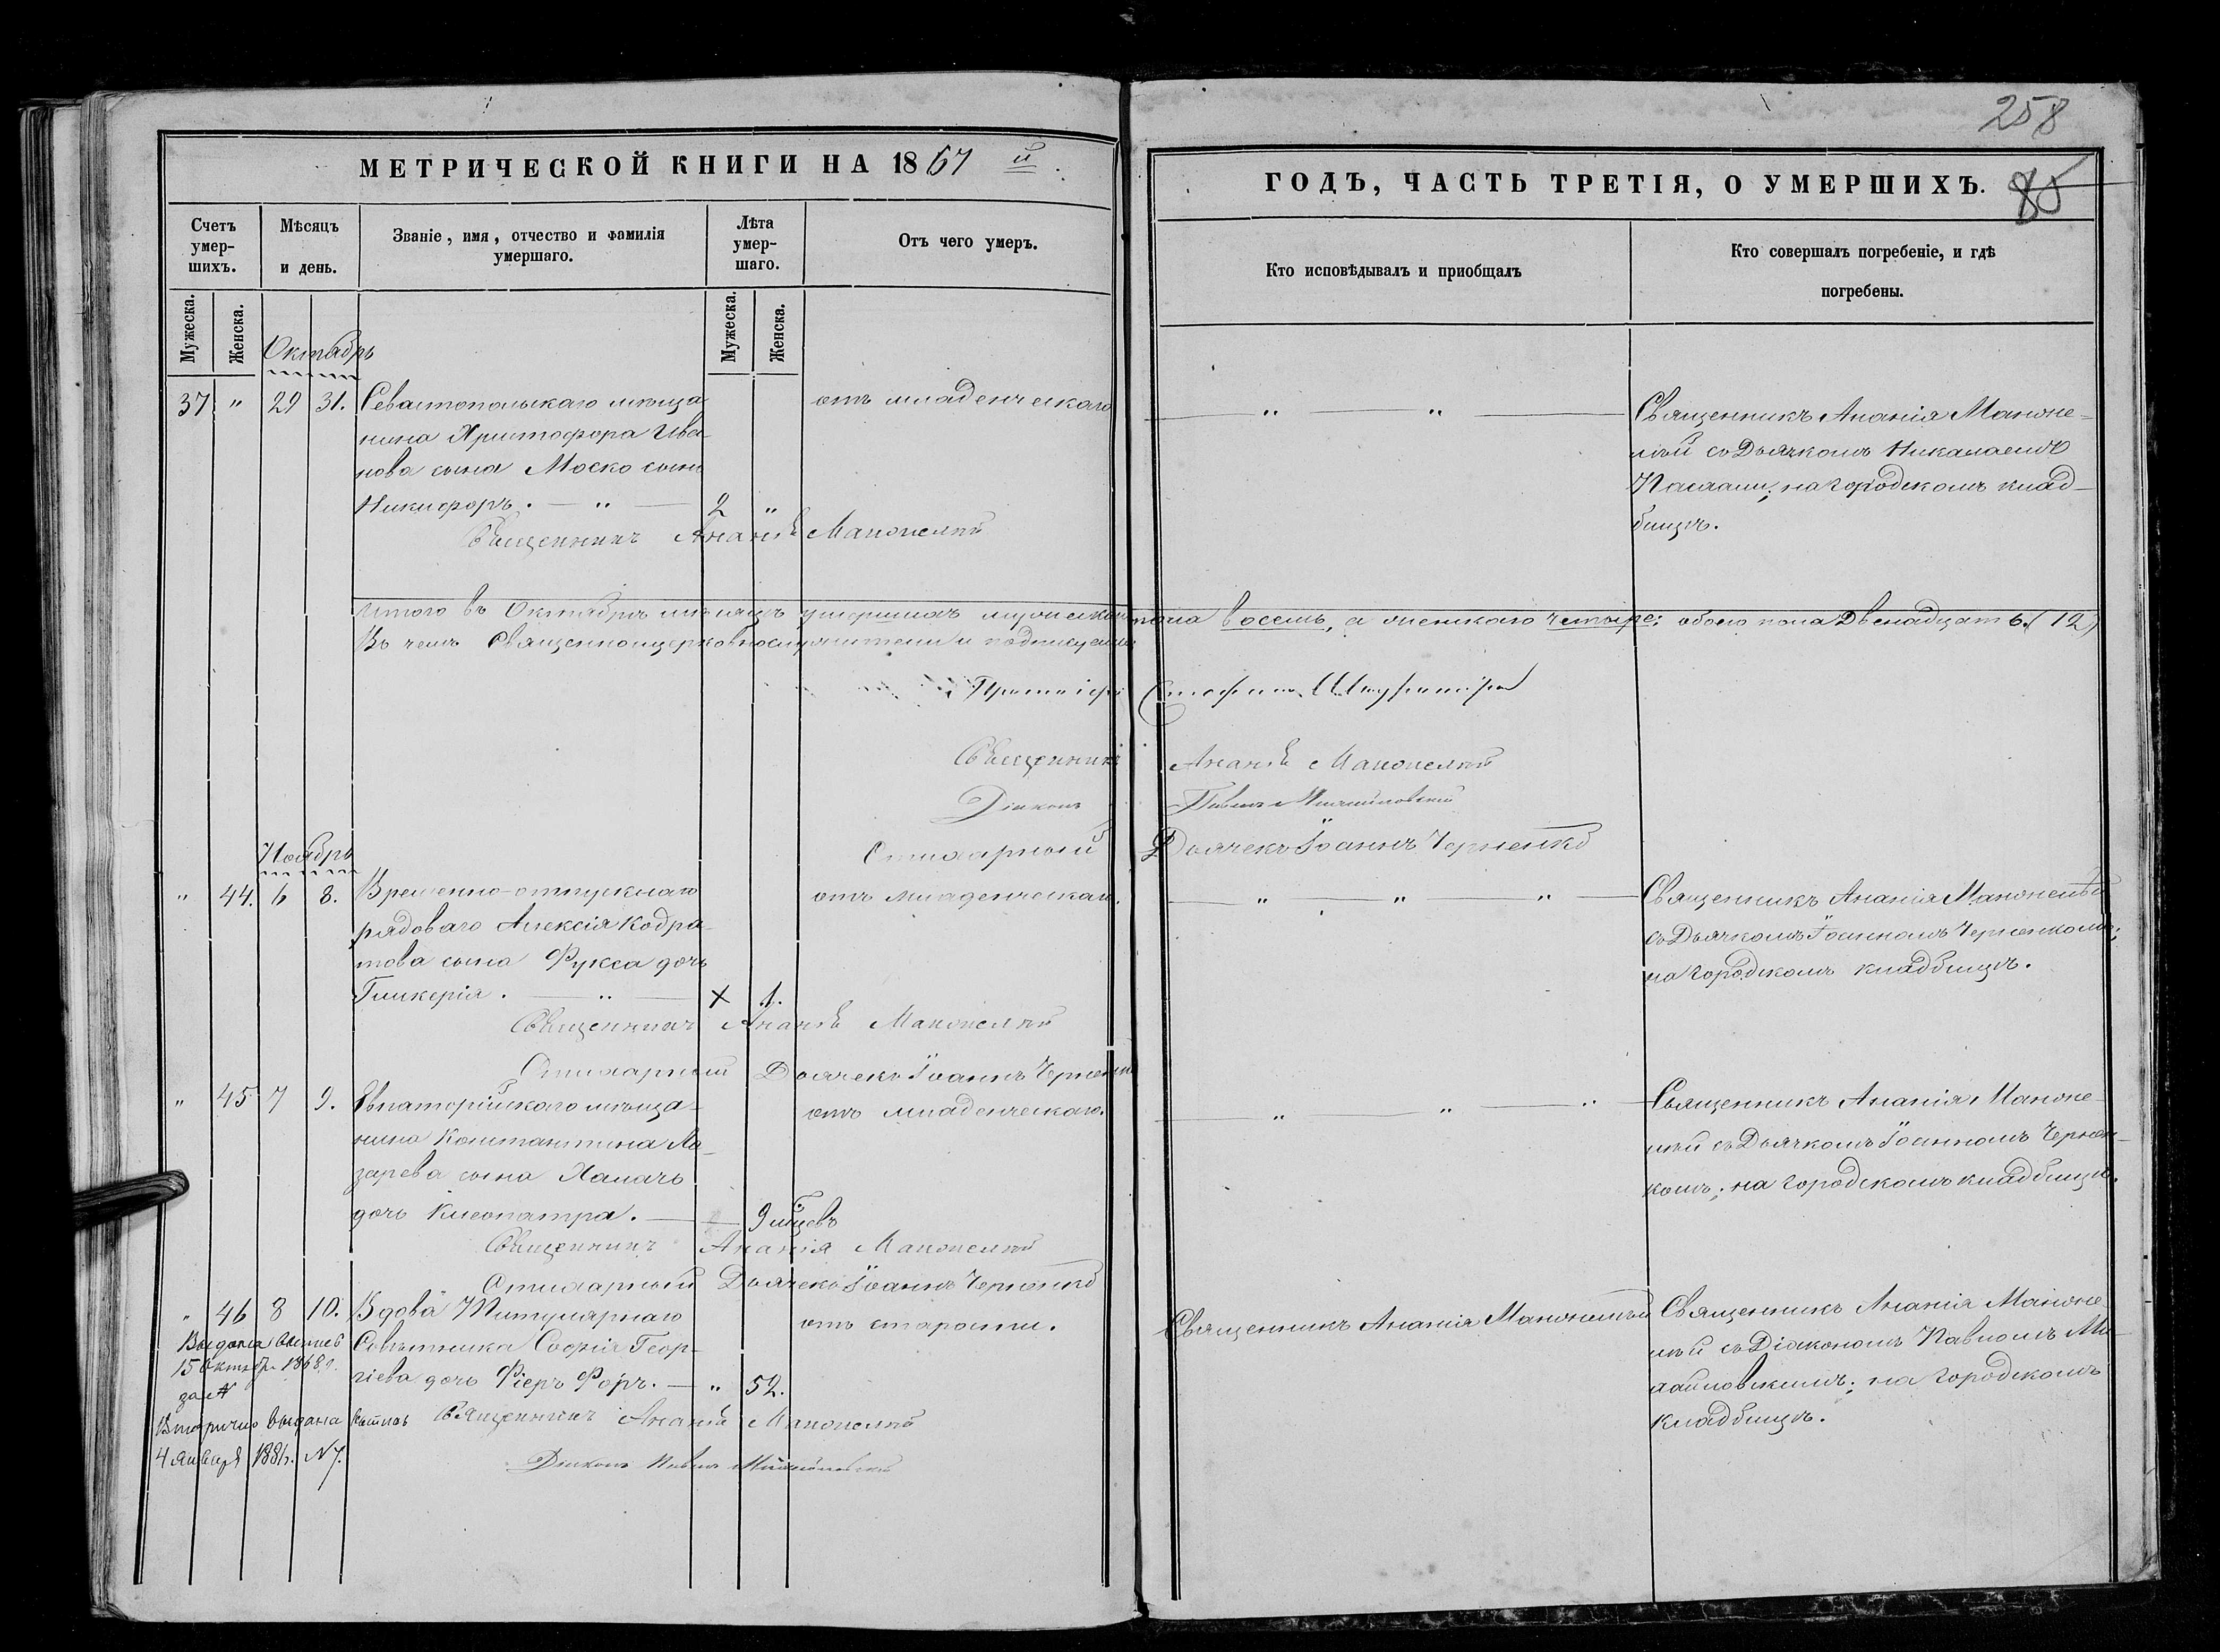 258
МЕТРИЧЕСКОЙ КНИГИ НА 1867 й
ГОДЪ, ЧАСТЬ ТРЕТІЯ, О УМЕРШИХЪ. 85
Счетъ умер-шихъ.
Мѣсяцъ и день.
Званіе, имя, отчество и фамилія умершаго.
Лѣта умер-шаго.
Отъ чего умеръ.
Кто исповѣдывалъ и приобщалъ
Кто совершалъ погребеніе, и гдѣ погребены.
Мужеска.
Женска.
Мужеска.
Женска.
Октябрь
37 " 29 31. Севастопольскаго мѣща-
нина Христофора Ива-
нова сына Моско сынъ
Никифоръ. — " — 2 "
отъ младенческаго
— " — " —
Священникъ Ананія Маноне-
лій съ Дьячкомъ Николаемъ
на городскомъ клад-
бищѣ.
Священникъ Ананія
Итого въ Октябрѣ мѣсяцѣ умершихъ мужескаго пола восемь, а женскаго четыре; обоего пола двенадцать (12)
Въ чемъ священноцерковнослужители и подписуемся
Протоіерей
Священникъ Ананія
Діаконъ Павелъ
Стихарный Дьячекъ Іоаннъ Черненко
Ноябрь
" 44. 6 8. Временно-отпускнаго
рядоваго Алексія Кодра-
това сына Фукса дочь
Гликерія. — " — X 1.
отъ младенческаго.
— " — " — " —
Священникъ Ананія
съ Дьячкомъ Іоанномъ Черненкомъ;
на городскомъ кладбищѣ.
Священникъ Ананія
Стихарный Дьячекъ Іоаннъ Черненко
" 45 7 9. Евпаторійскаго мѣща-
нина Константина Ла-
зарева сына Халачъ
дочь Клеопатра. — 9 мѣсцевъ
отъ младенческаго.
— " — " — " —
Священникъ Ананія Маноне-
лій съ Дьячкомъ Іоанномъ Чернен-
комъ; на городскомъ кладбищѣ.
Священникъ Ананія
Стихарный Дьячекъ Іоаннъ Черненко
" 46 8 10. Вдова Титулярнаго
Совѣтника Софія Геор-
гіева дочь Фіеръ Форъ. — " 52.
отъ старости.
Священникъ Ананія
Священникъ Ананія Маноне-
лій съ Діакономъ Павломъ Ми-
на городскомъ
кладбищѣ.
Выдана
15 Октябр. 1868 г.
за №
Вторично выдана
4 Января 1881 г. № 7.
Священникъ Ананія
Діаконъ Павелъ